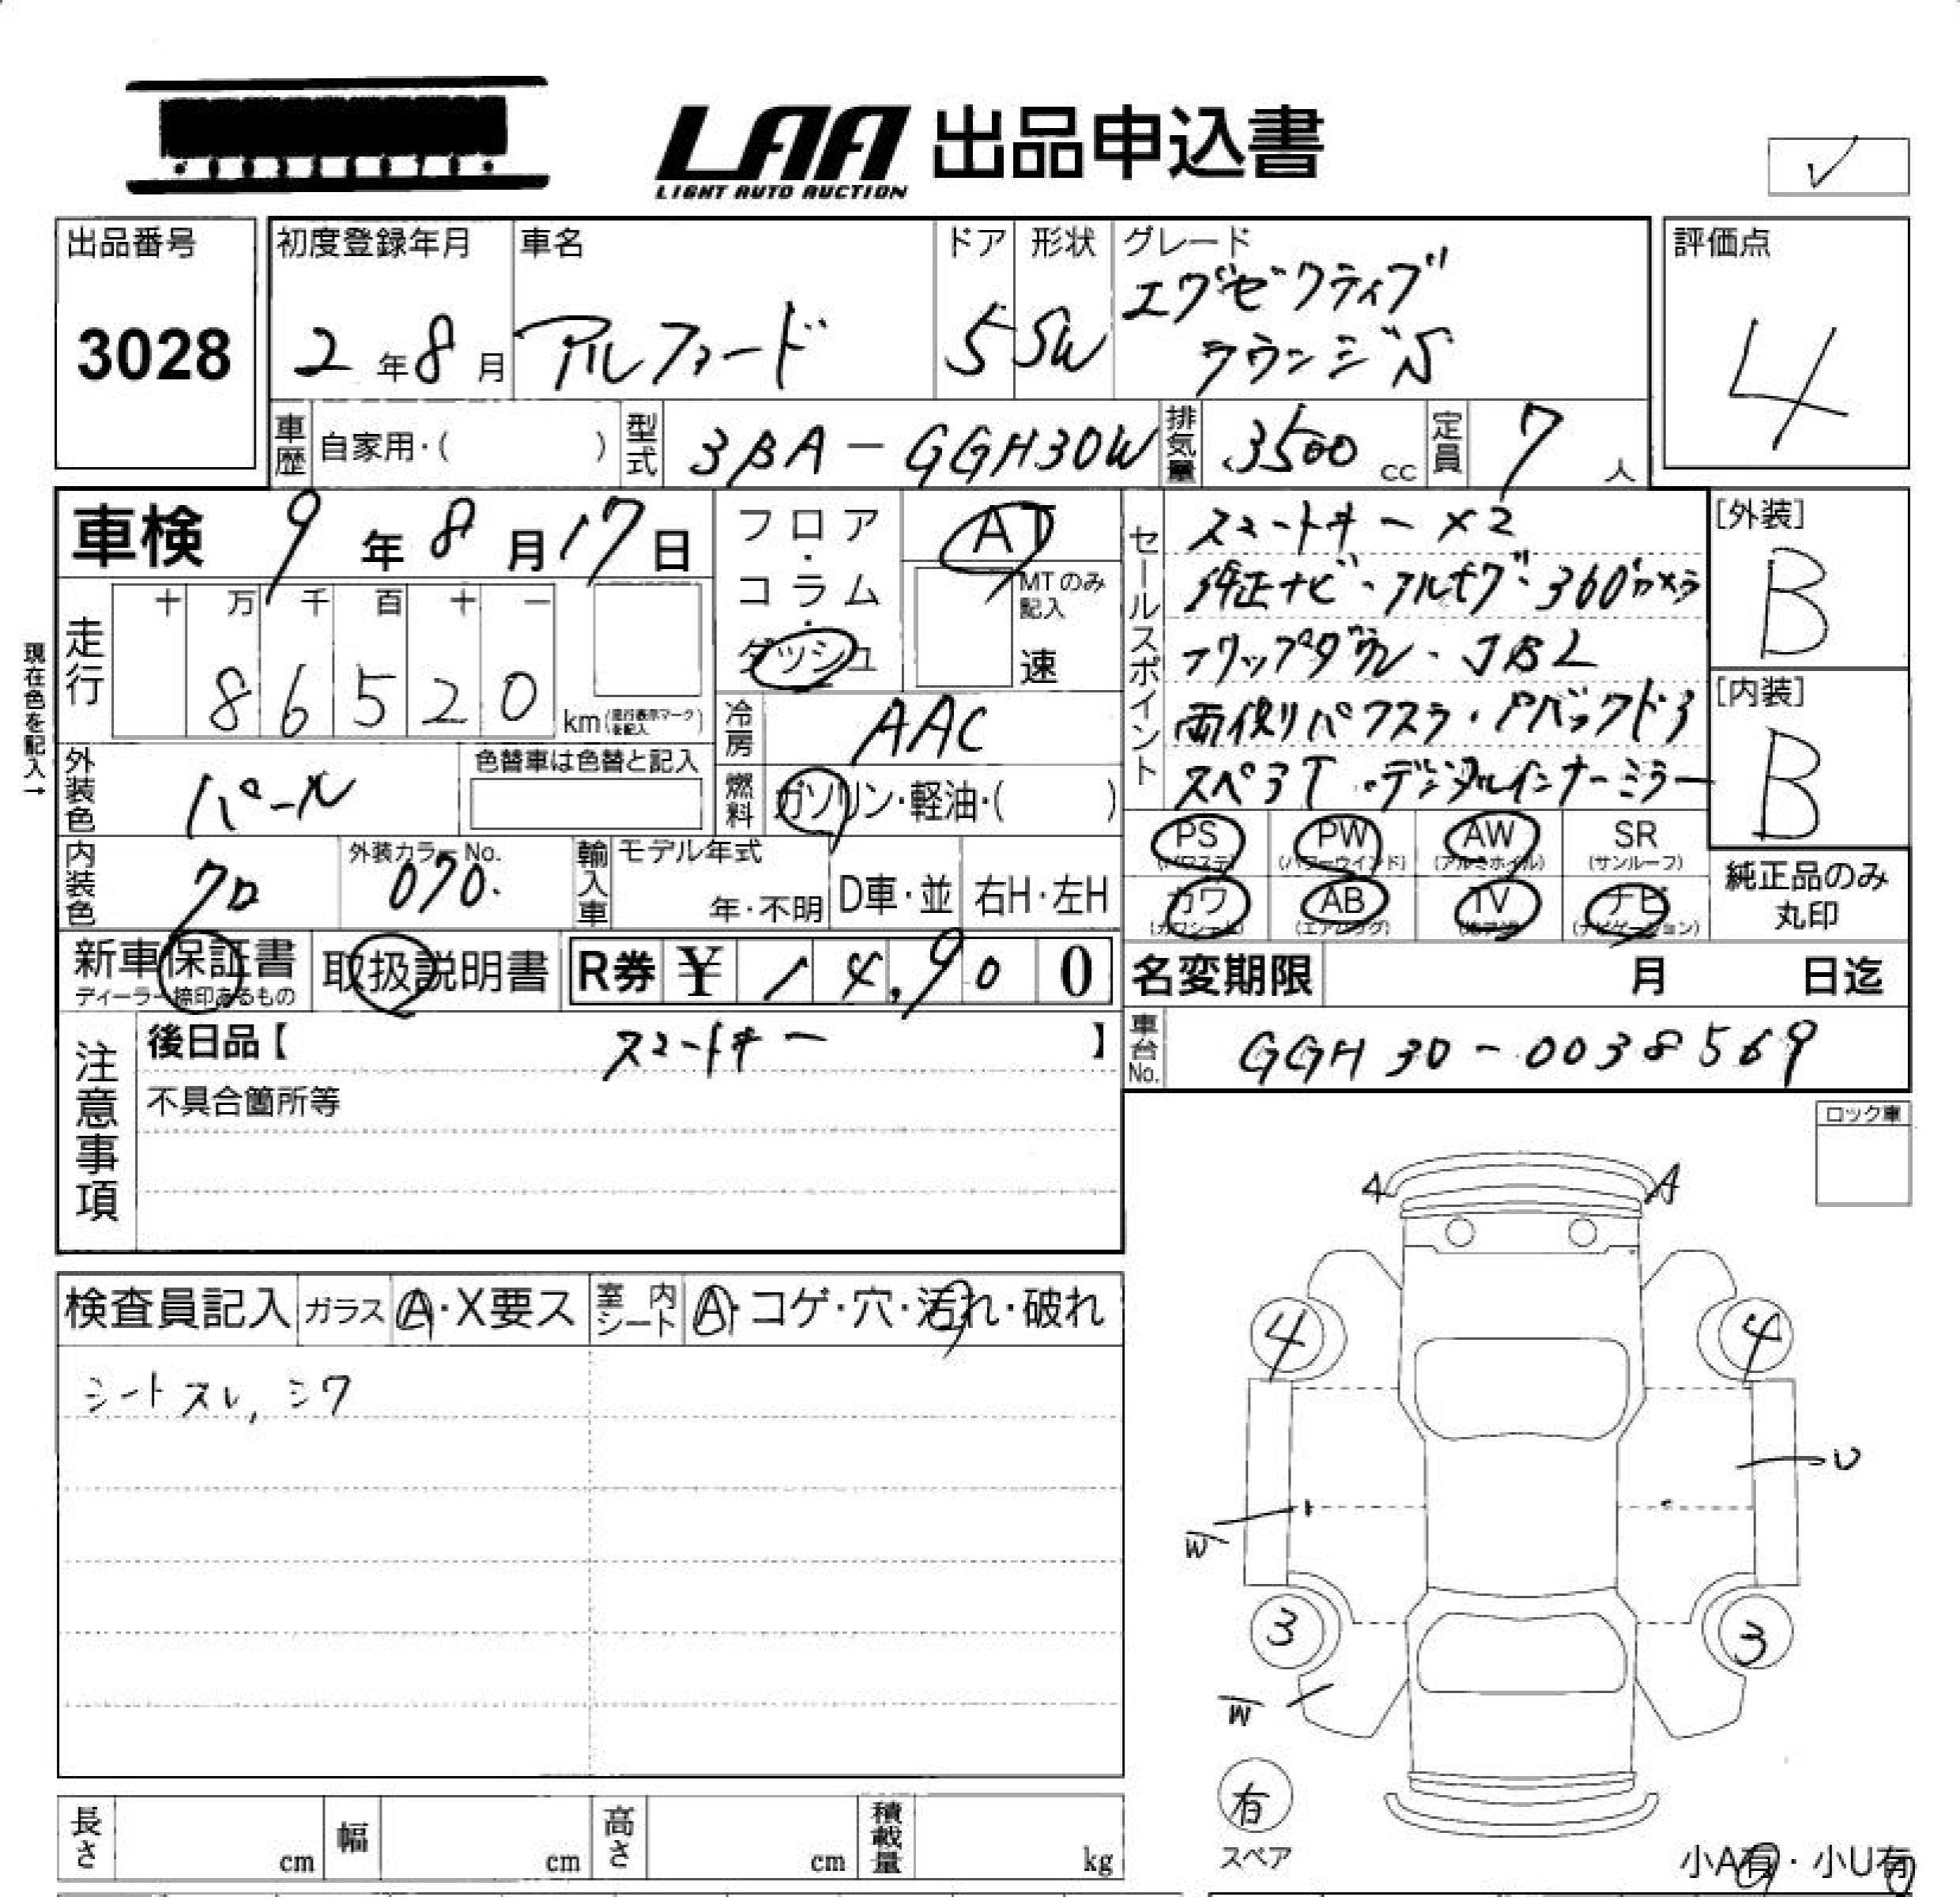 LAA 出品申込書
LIGHT AUTO AUCTION
✓
出品番号
3028
初度登録年月
2年8月
車名
アルファード
ドア
5
形状
SW
グレード
エグゼクティブ
ラウンジS
評価点
4
車歴 自家用・( )
型式 3BA-GGH30W
排気量 3500cc
定員 7人
車検 9年8月17日
現在色を記入→
走行 十 万 千 百 十 一
86520 km(走行表示マークを記入)
フロア・コラム・ダッシュ
AT
MTのみ記入
速
冷房 AAC
燃料 ガソリン・軽油・( )
外装色 パール
色替車は色替と記入
内装色 クロ
外装カラーNo. 070.
輸入車 モデル年式
年・不明 D車・並 右H・左H
セールスポイント
スマートキー×2
純正ナビ・フルセグ・360°カメラ
フリップダウン・JBL
両側パワスラ・パワーバックドア
スペアT・デジタルインナーミラー
[外装]
B
[内装]
B
PS (パワステ) PW (パワーウインド) AW (アルミホイル) SR (サンルーフ)
カワ (カワシート) AB (エアバッグ) TV ナビ (ナビゲーション)
純正品のみ
丸印
新車保証書
ディーラー捺印あるもの
取扱説明書
R券 ¥14,900
名変期限 月 日迄
車台No. GGH30-0038569
注意事項
後日品【 スマートキー 】
不具合箇所等
ロック車
検査員記入 ガラス A・X要ス 室内シート A・コゲ・穴・汚れ・破れ
シートスレ, シワ
A A
4 4
U
W
3 3
W
有
スペア
小A有・小U有
長さ cm 幅 cm 高さ cm 積載量 kg